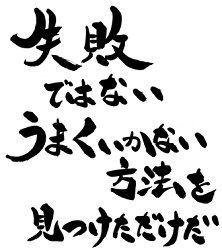 失敗
ではない
うまくいかない
方法を
見つけただけだ